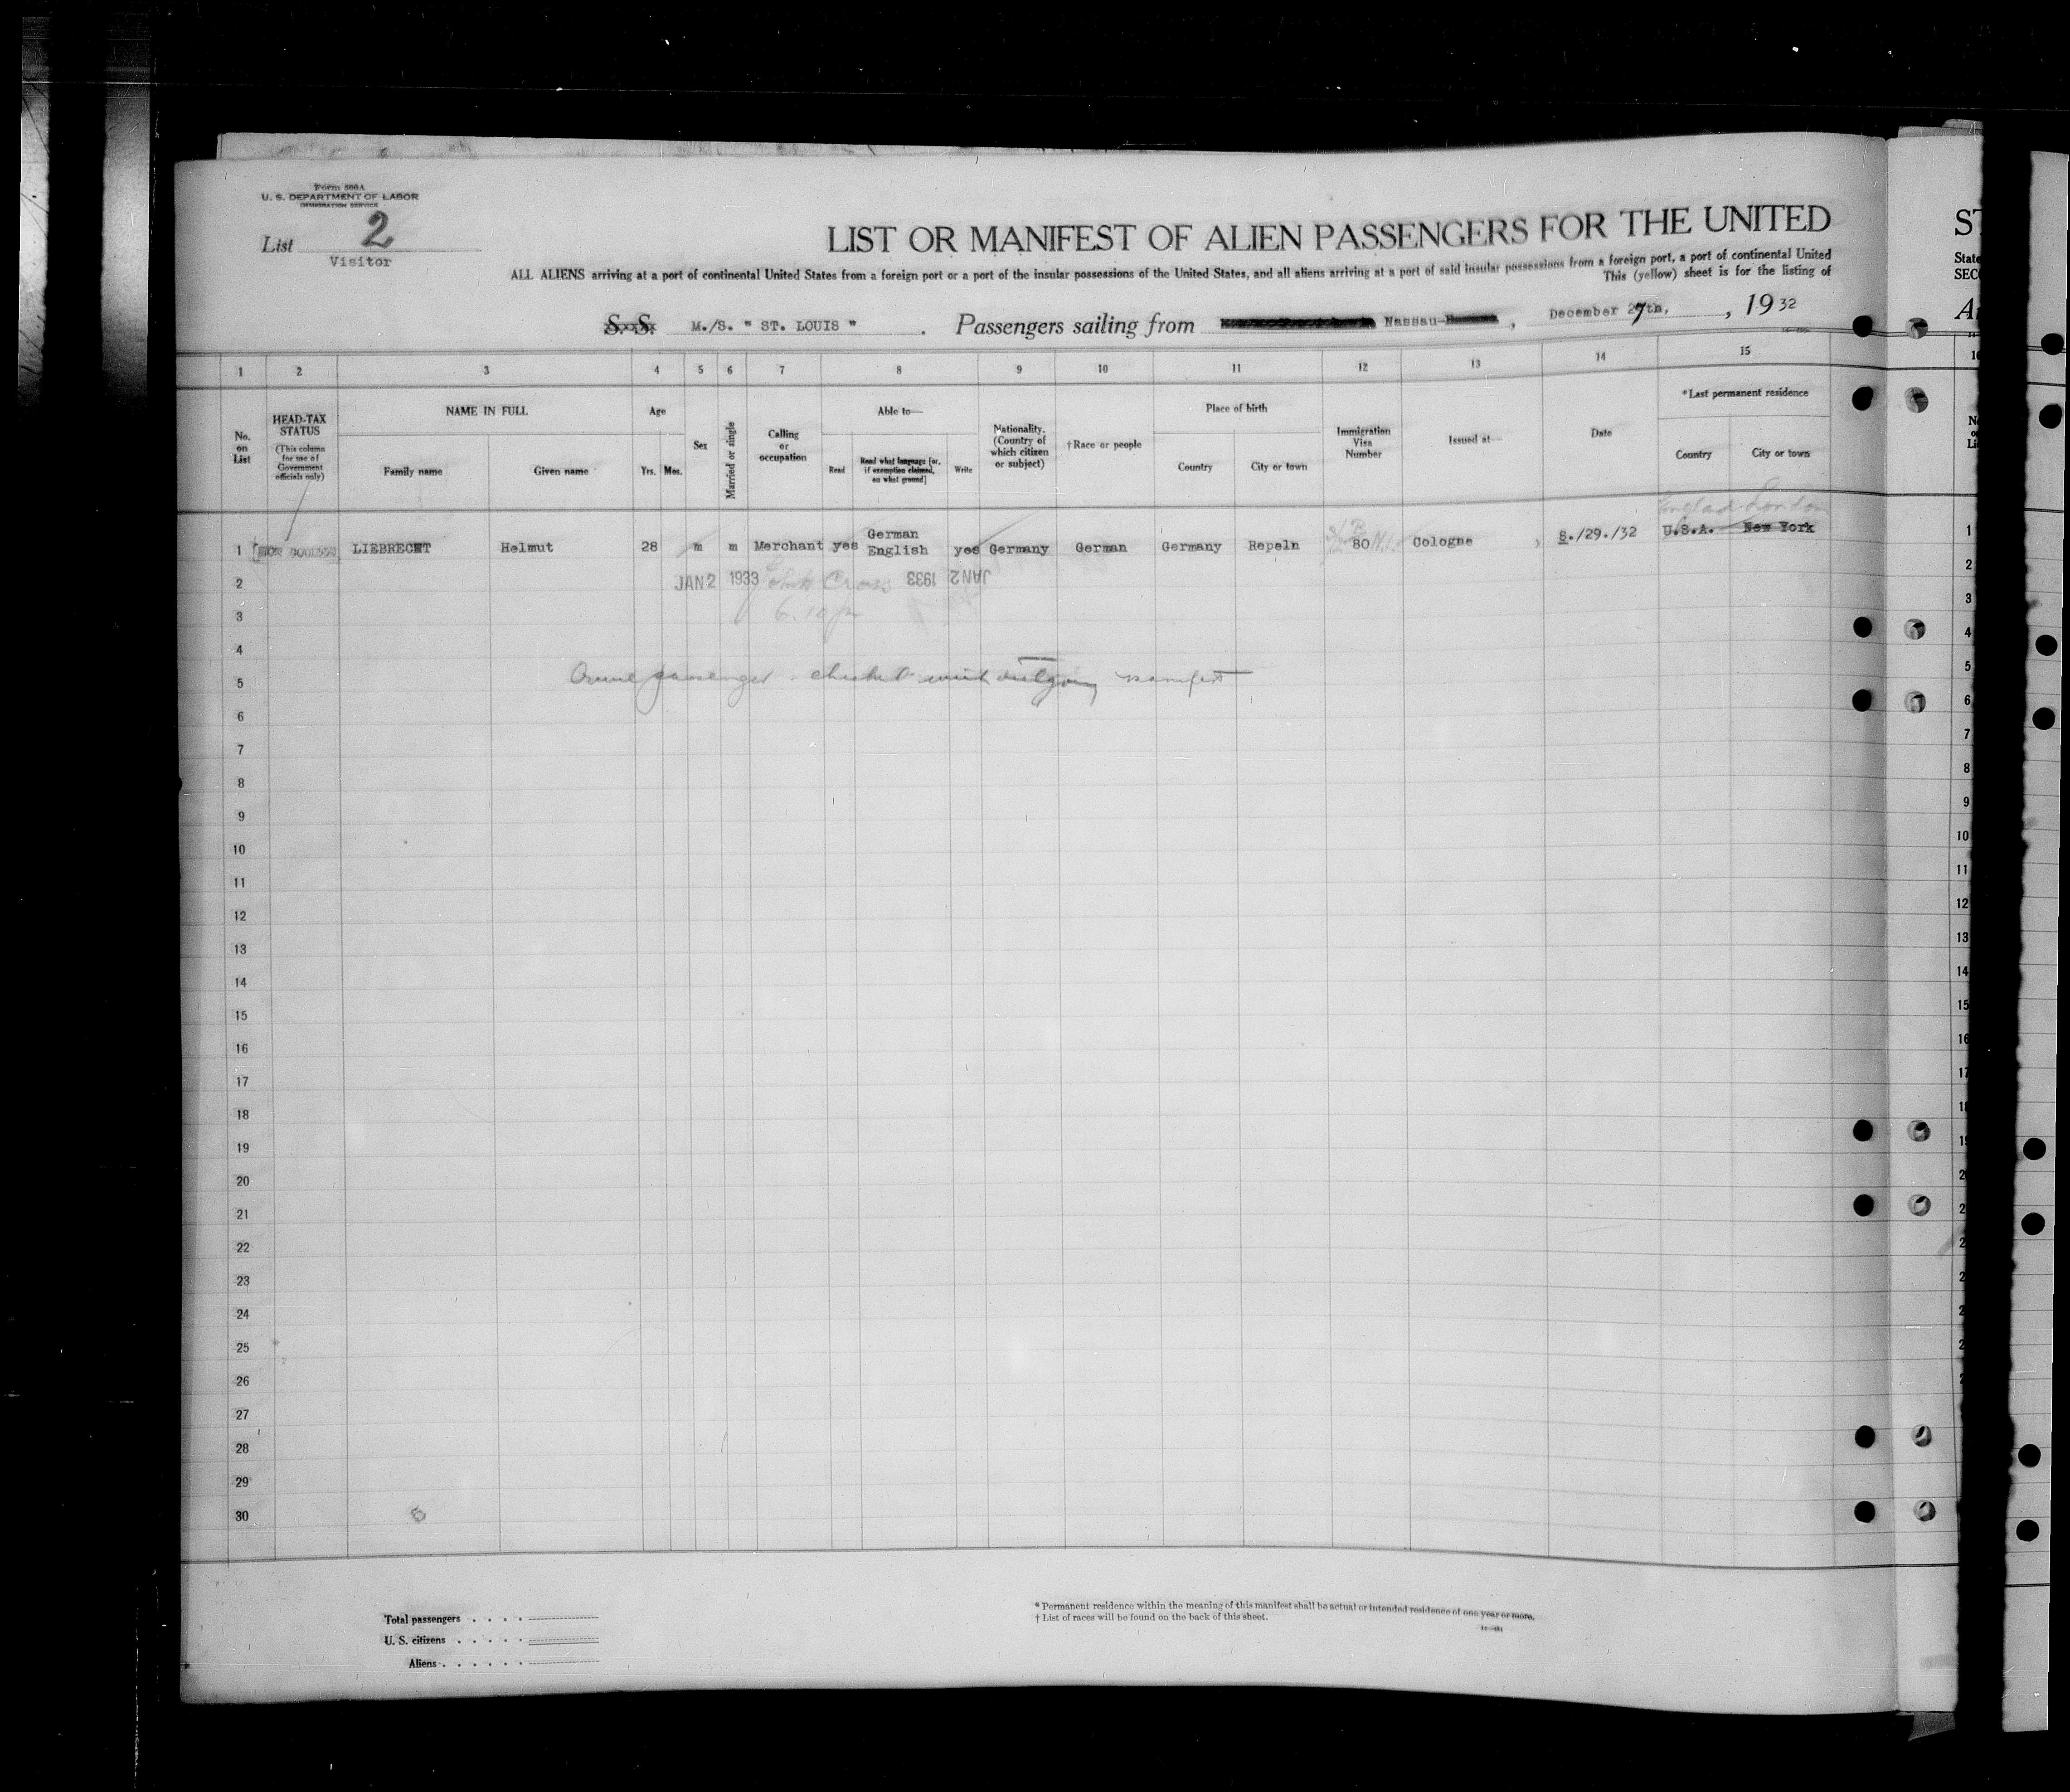 Form 500A
U. S. DEPARTMENT OF LABOR
IMMIGRATION SERVICE
List 2
Visitor
LIST OR MANIFEST OF ALIEN PASSENGERS FOR THE UNITED
ALL ALIENS arriving at a port of continental United States from a foreign port or a port of the insular possessions of the United States, and all aliens arriving at a port of said insular possessions from a foreign port, a port of continental United
This (yellow) sheet is for the listing of
S. S. M./S. " ST. LOUIS " . Passengers sailing from Nassau- , December 27th, , 1932
1 2 3 4 5 6 7 8 9 10 11 12 13 14 15
No. on List
HEAD-TAX STATUS
(This column for use of Government officials only)
NAME IN FULL
Family name
Given name
Age
Yrs. Mos.
Sex
Married or single
Calling or occupation
Able to—
Read
Read what language [or, if exemption claimed, on what ground]
Write
Nationality. (Country of which citizen or subject)
†Race or people
Place of birth
Country
City or town
Immigration Visa Number
Issued at—
Date
*Last permanent residence
Country
City or town
England London
1 LIEBRECHT Helmut 28 m m Merchant yes German English yes Germany German Germany Repeln 80 Cologne 8./29./32 U.S.A. New York
2 JAN 2 1933 JAN 2 1933
3
4
5 passenger outgoing manifest
6
7
8
9
10
11
12
13
14
15
16
17
18
19
20
21
22
23
24
25
26
27
28
29
30
Total passengers
U. S. citizens
Aliens
* Permanent residence within the meaning of this manifest shall be actual or intended residence of one year or more.
† List of races will be found on the back of this sheet.
ST
State
SEC
1
2
3
4
5
6
7
8
9
10
11
12
13
14
15
16